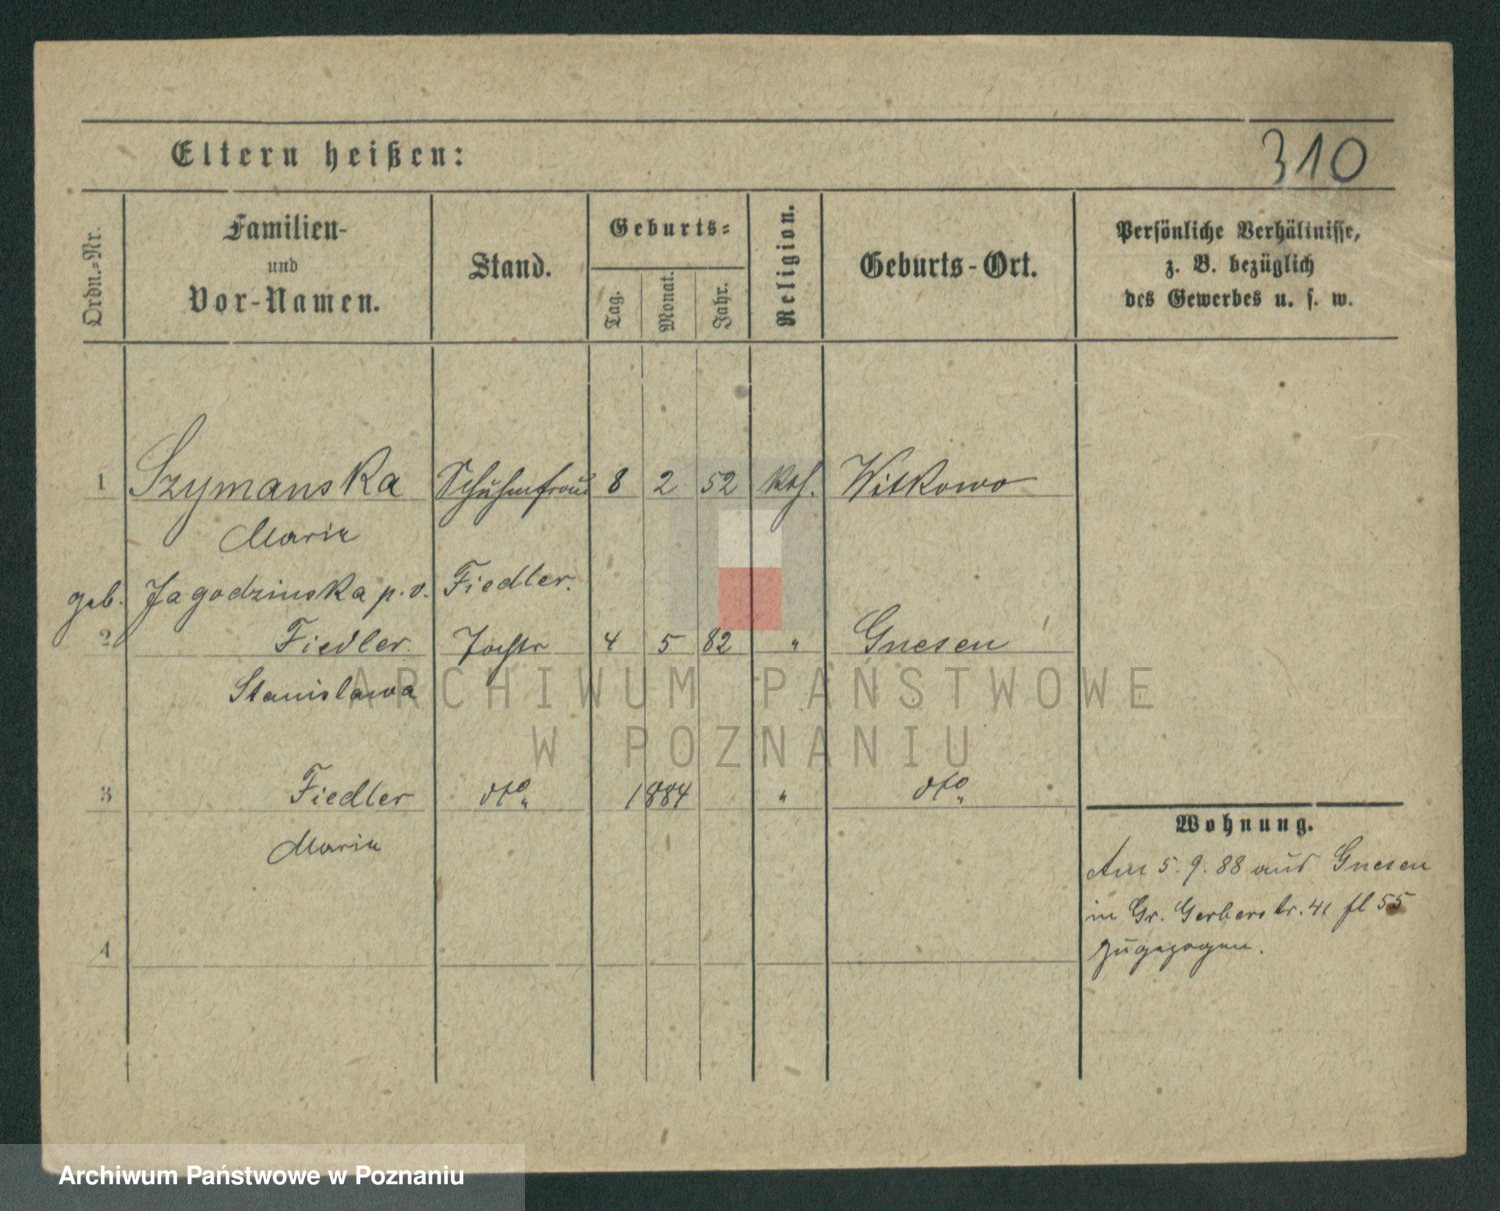 310
Eltern heißen:
Ordn.-Nr.
Familien-
und
Vor-Namen.
Stand.
Geburts-
Tag.
Monat.
Jahr.
Religion.
Geburts-Ort.
Persönliche Verhältnisse,
z. B. bezüglich
des Gewerbes u. s. w.
1 Szymanska Schuhmfrau 8 2 52 kath. Witkowo
Maria
geb. Jagodzinska p. v. Fiedler.
2 Fiedler Tochtr 4 5 82 " Gnesen
Stanislawa
3 Fiedler dto " 1884 " dto "
Maria
Wohnung.
Am 5. 9. 88 aus Gnesen
in Gr. Gerberstr. 41 fl 55
zugezogen.
4
ARCHIWUM PAŃSTWOWE
W POZNANIU
Archiwum Państwowe w Poznaniu